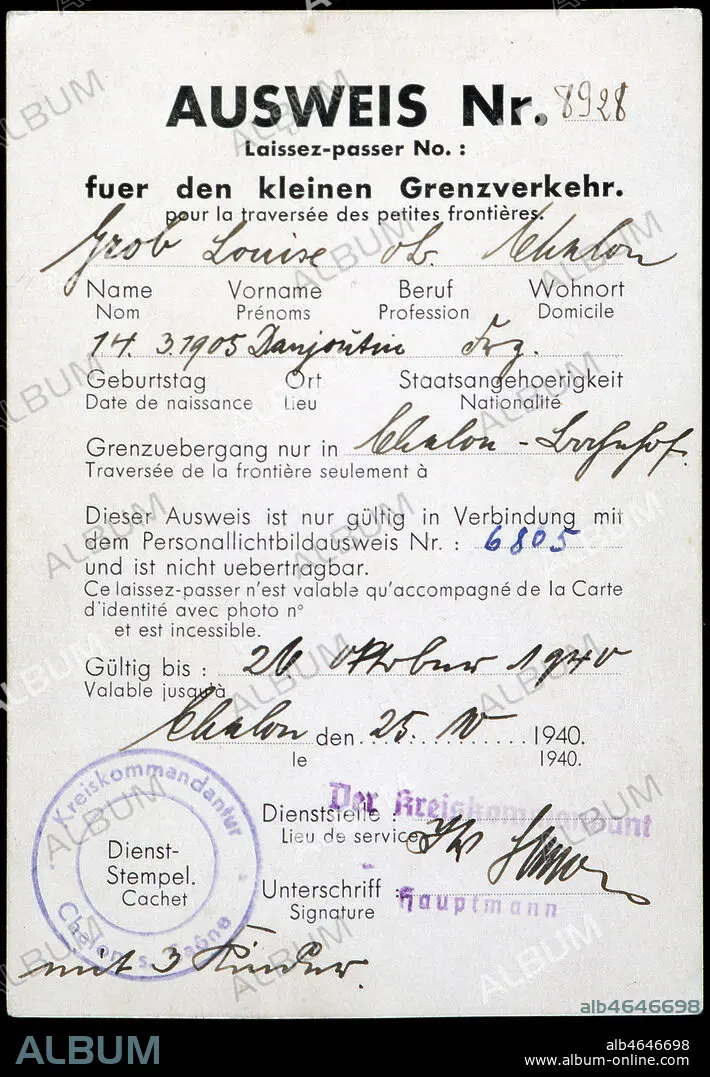 AUSWEIS Nr. 8928
Laissez-passer No. :
fuer den kleinen Grenzverkehr.
pour la traversée des petites frontières.
Grob Louise oB. Chalon
Name Vorname Beruf Wohnort
Nom Prénoms Profession Domicile
14. 3. 1905 Danjoutin Frz.
Geburtstag Ort Staatsangehoerigkeit
Date de naissance Lieu Nationalité
Grenzuebergang nur in Chalon - Bahnhof.
Traversée de la frontière seulement à
Dieser Ausweis ist nur gültig in Verbindung mit
dem Personallichtbildausweis Nr. : 6805
und ist nicht uebertragbar.
Ce laissez-passer n'est valable qu'accompagné de la Carte
d'identité avec photo n°
et est incessible.
Gültig bis : 26 Oktober 1940
Valable jusqu'à
Chalon den 25. 10 1940.
le 1940.
Kreiskommandantur
Chalon s. Saône
Dienst-
Stempel.
Cachet
Der Kreiskommandant
Dienststelle :
Lieu de service
Unterschrift :
Signature
Hauptmann
mit 3 Kinder.
ALBUM
alb4646698
ALBUM
alb4646698
www.album-online.com